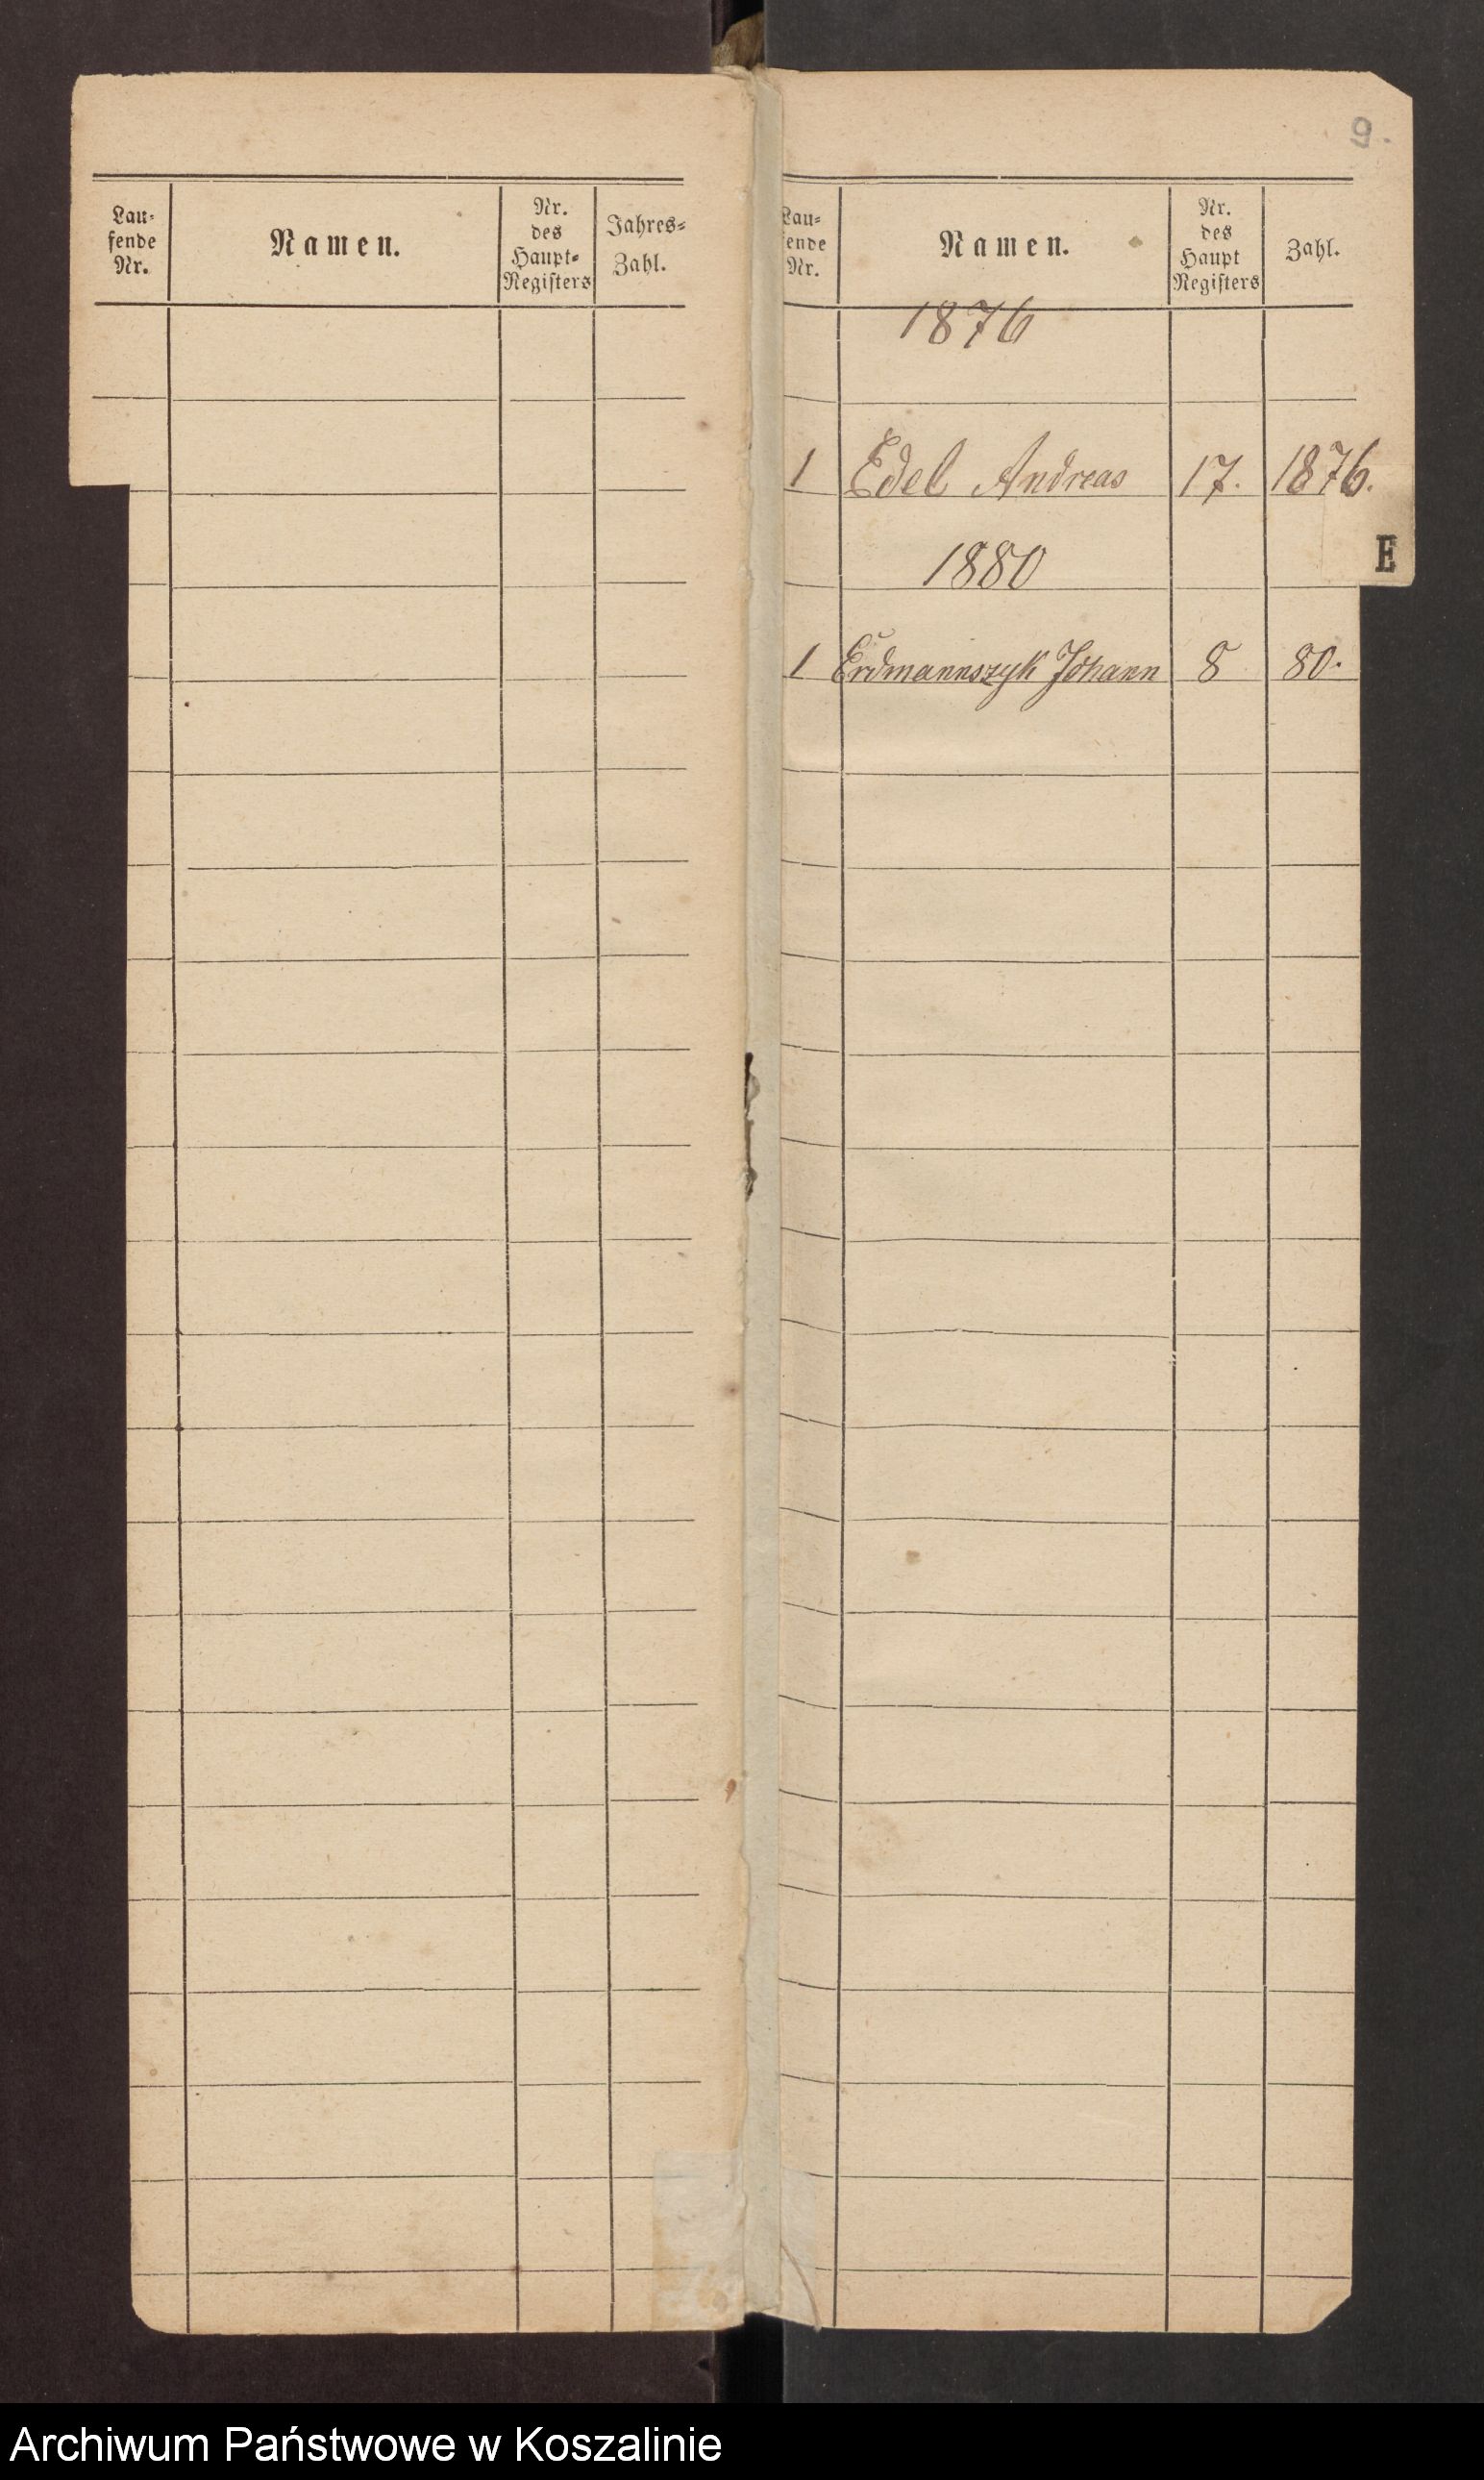 Lau-
fende
Nr.
Namen.
Nr.
des
Haupt-
Registers
Jahres-
Zahl.
9.
Lau-
fende
Nr.
Namen.
Nr.
des
Haupt
Registers
Zahl.
1876
1 Edel Andreas 17. 1876.
E
1880
1 Erdmannszyk Johann 8 80.
Archiwum Państwowe w Koszalinie